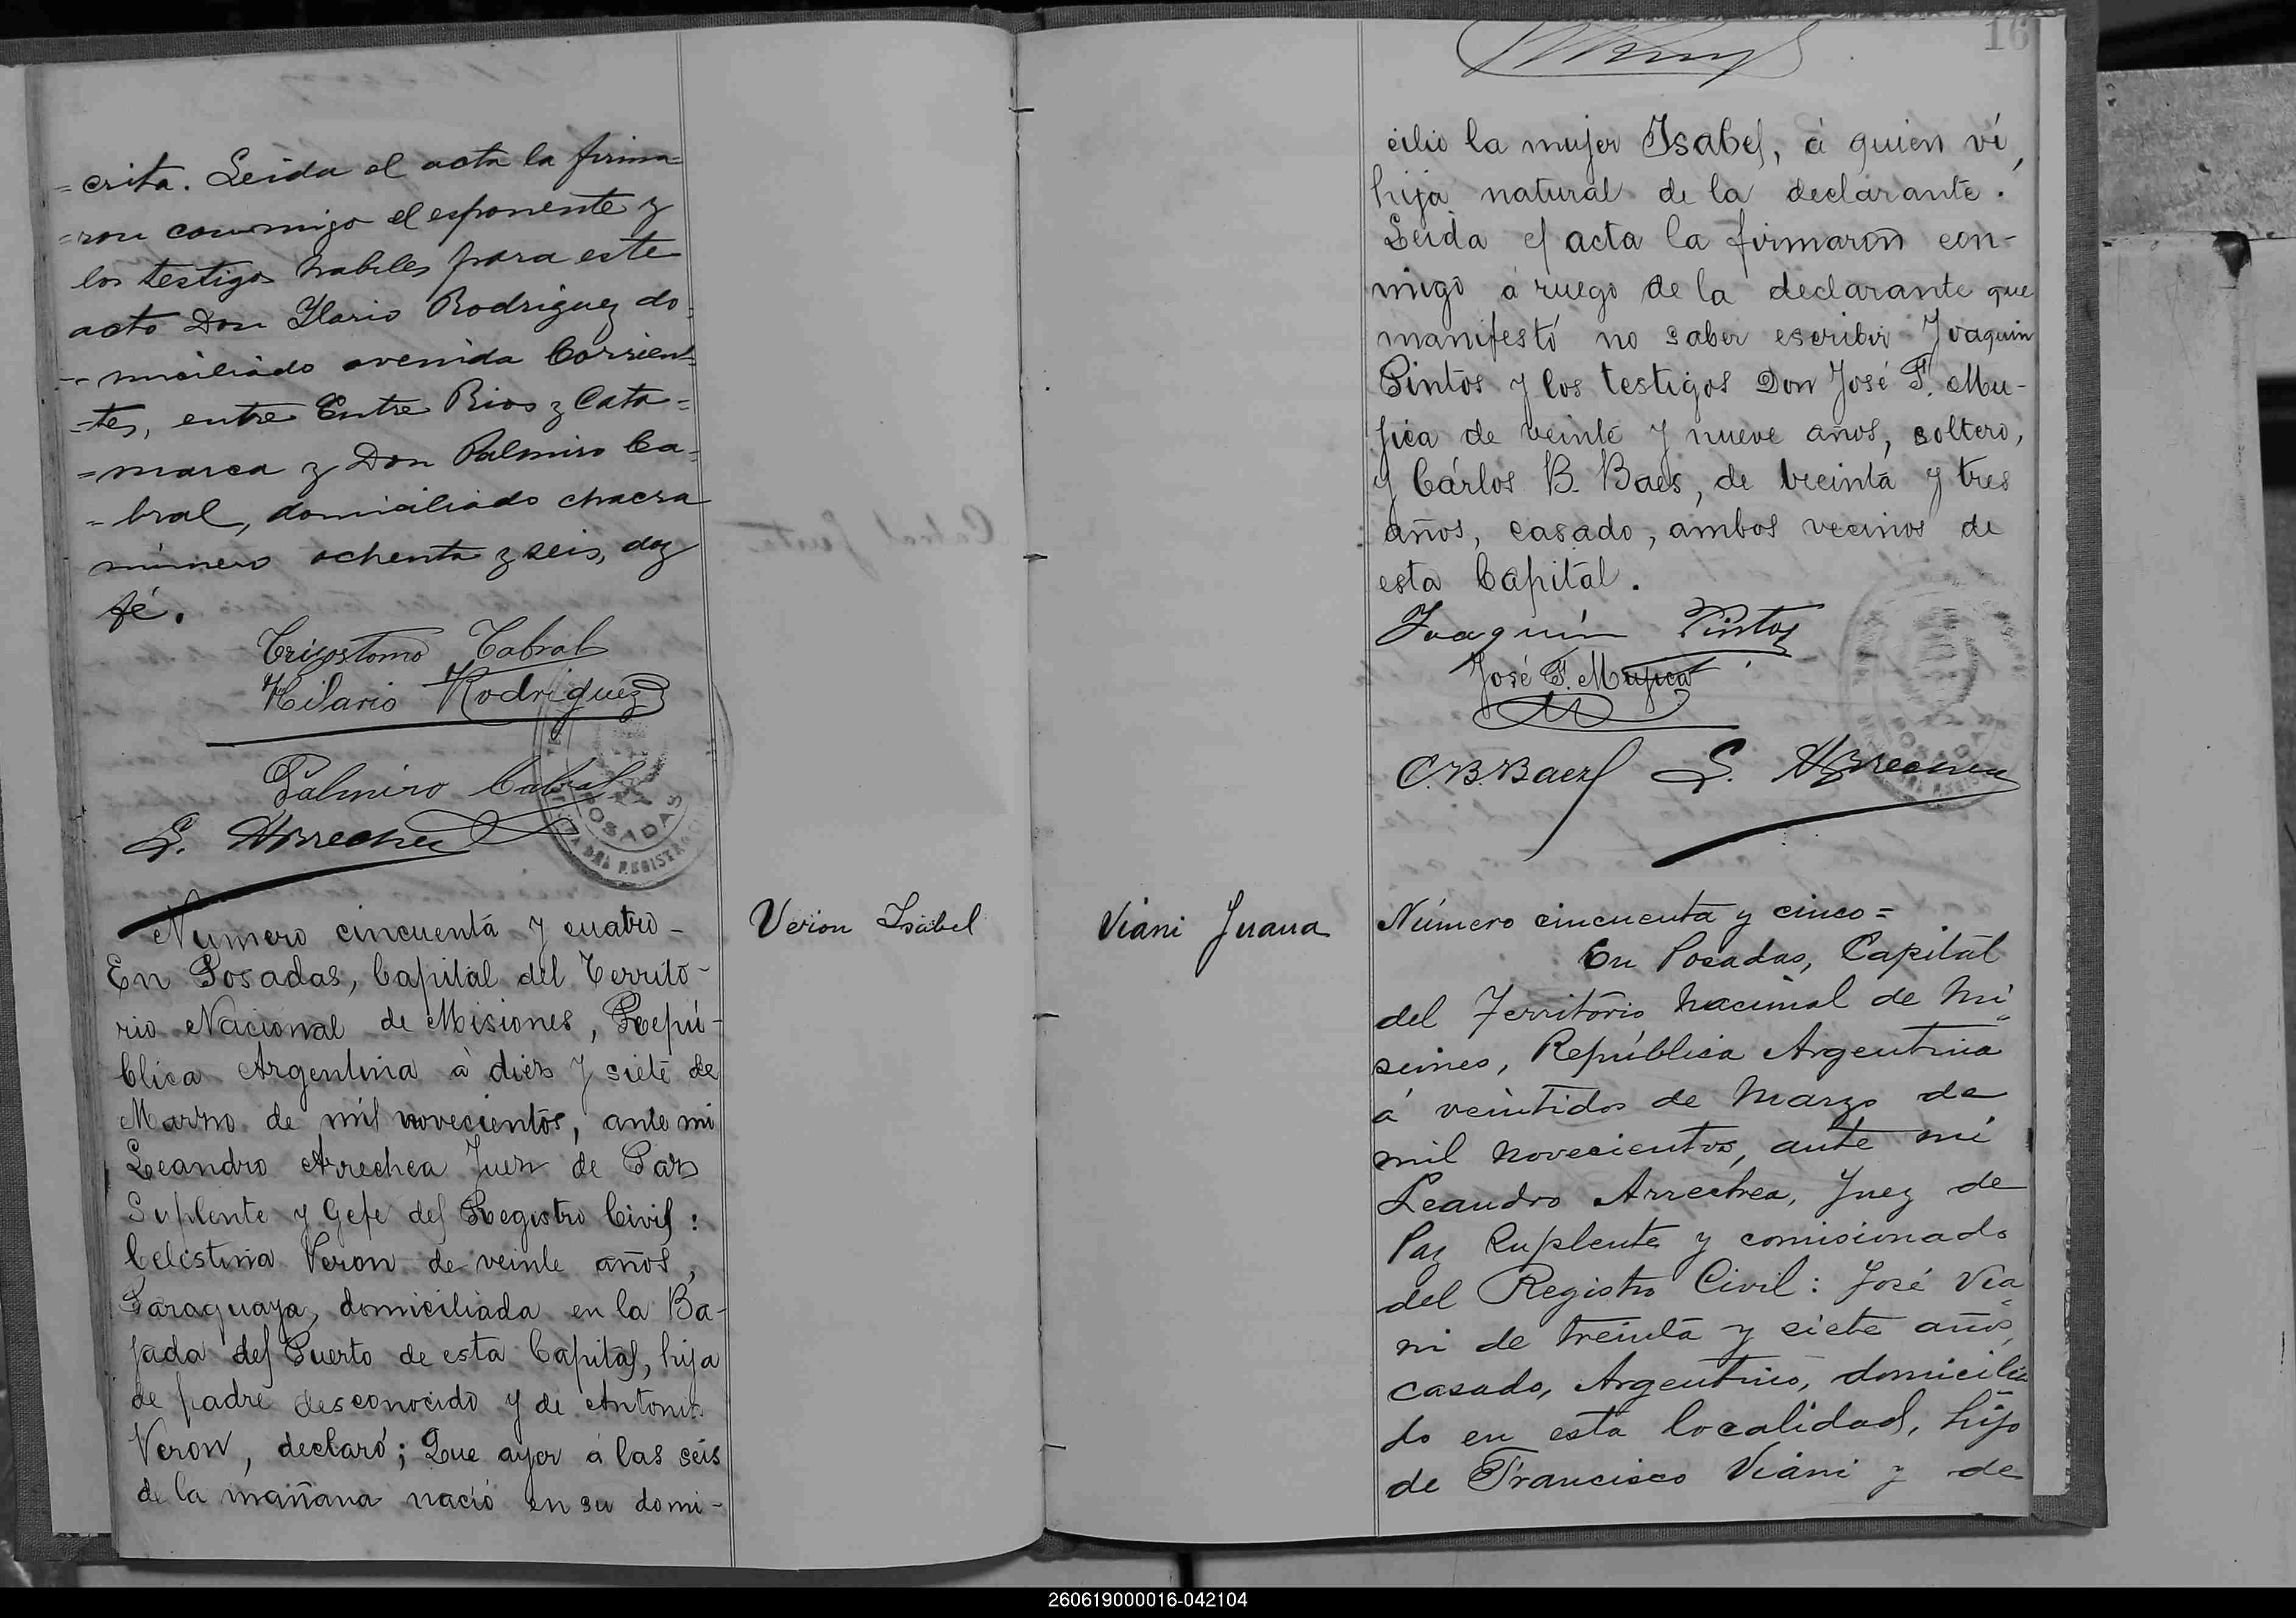 =crita. Leida el acta la firma=
=ron conmigo el esponente y
los testigos habiles para este
acto Don Ilario Rodriguez do=
=miciliado avenida Corrien=
=tes, entre Entre Rios y Cata=
=marca y Don Palmiro Ca=
=bral, domiciliado chacra
número ochenta y seis, doy
fé.
Crisostomo Cabral
Hilario Rodriguez
Palmiro Cabral
L. Arrechea
POSADAS
DEL REGISTRO
Número cincuenta y cuatro-
En Posadas, Capital del Territo-
rio Nacional de Misiones, Repú-
blica Argentina à diez y siete de
Marzo de mil novecientos, ante mi
Leandro Arrechea Juez de Paz
Suplente y Gefe del Registro Civil:
Celestina Veron de veinte años,
Paraguaya, domiciliada en la Ba-
jada del Puerto de esta Capital, hija
de padre desconocido y de Antonia
Veron, declaró; Que ayer á las seis
de la mañana nació en su domi-
Veron Isabel
16
cilio la mujer Isabel, á quien ví,
hija natural de la declarante.
Leida el acta la firmaron con-
migo á ruego de la declarante que
manifestó no saber escribir Joaquin
Pintos y los testigos Don José F. Mu-
jica de veinte y nueve años, soltero,
y Cárlos B. Baes, de treinta y tres
años, casado, ambos vecinos de
esta Capital.
Joaquín Pintos
José F. Mujica
C. B. Baez L. Arrechea
POSADAS
Viani Juana
Número cincuenta y cinco=
En Posadas, Capital
del Territorio Nacional de Mi=
siones, República Argentina
á veintidos de Marzo de
mil novecientos, ante mí
Leandro Arrechea, Juez de
Paz Suplente y comisionado
del Registro Civil: José Via=
ni de treinta y siete años,
casado, Argentino, domicilia=
do en esta localidad, hijo
de Francisco Viani y de
260619000016-042104